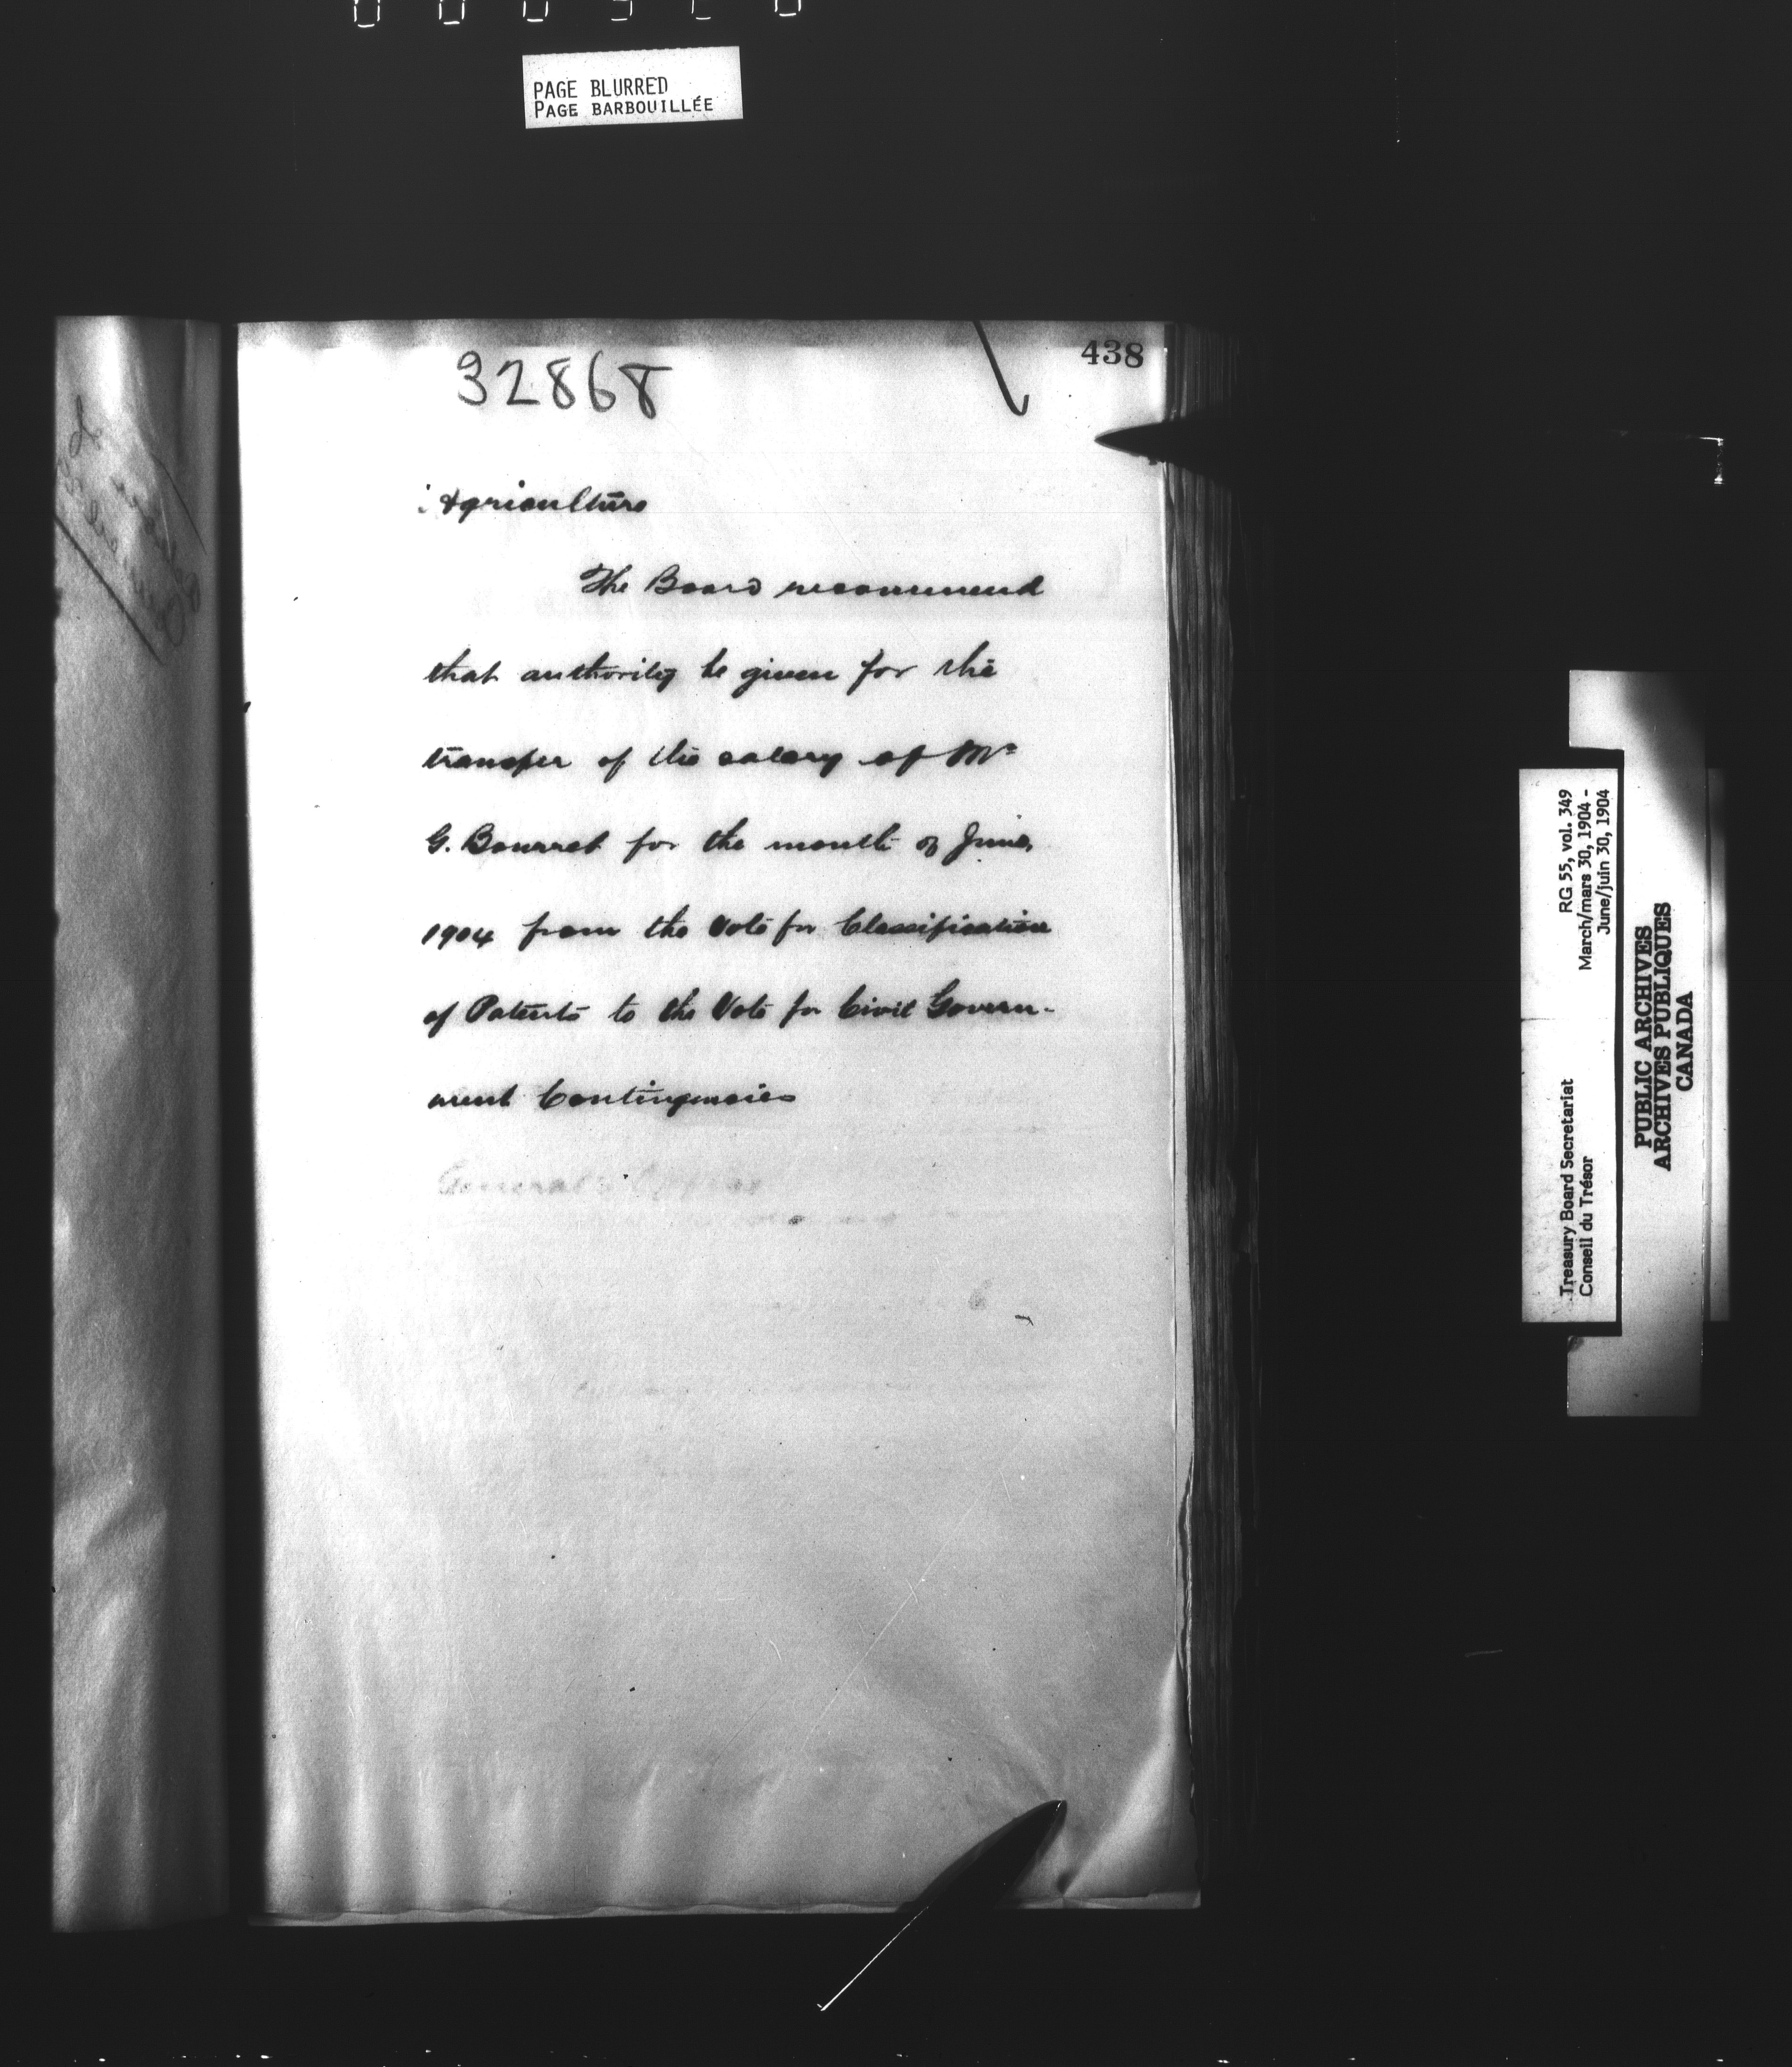 PAGE BLURRED
PAGE BARBOUILLÉE
438
32868
Agriculture
The Board recommend
that authority be given for the
transfer of the salary of Mr
G. Bourret for the month of June,
1904 from the Vote for Classification
of Patents to the Vote for Civil Govern-
ment Contingencies
General's Office
Treasury Board Secretariat
Conseil du Trésor
RG 55, vol. 349
March/mars 30, 1904 -
June/juin 30, 1904
PUBLIC ARCHIVES
ARCHIVES PUBLIQUES
CANADA